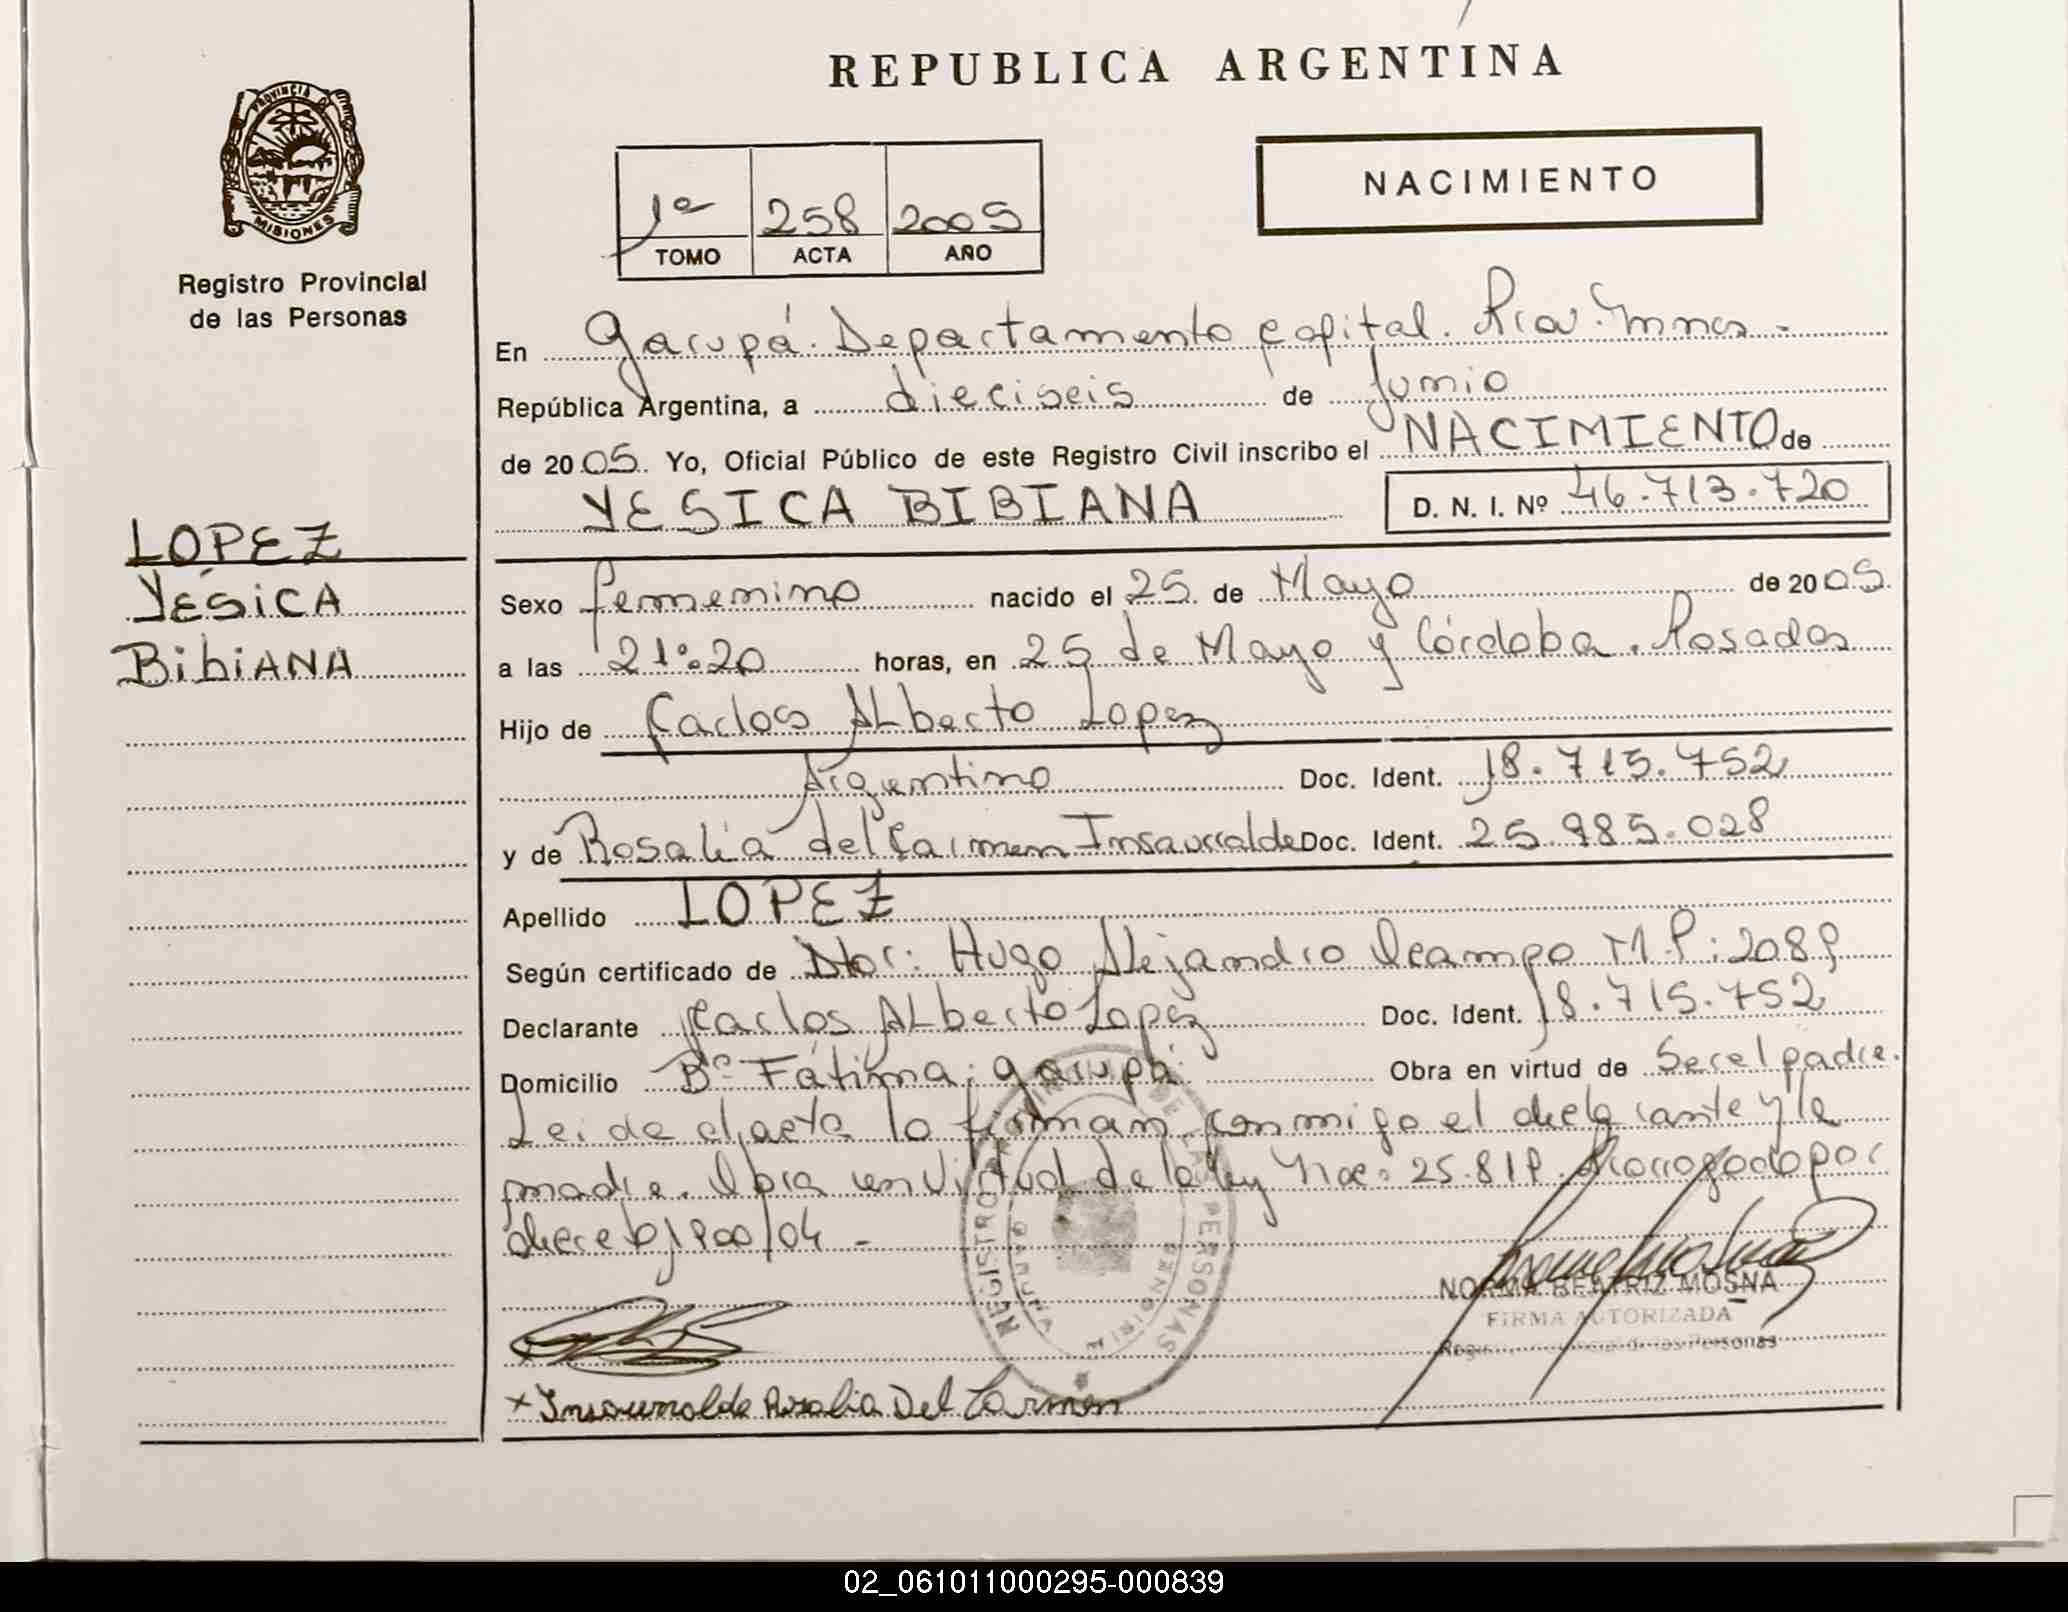 REPUBLICA ARGENTINA
PROVINCIA DE
MISIONES
Registro Provincial
de las Personas
1ª 258 2005
TOMO ACTA AÑO
NACIMIENTO
En Garupá. Departamento Capital. Pcia. Mnes.-
República Argentina, a dieciseis de Junio
de 2005. Yo, Oficial Público de este Registro Civil inscribo el NACIMIENTO de
YESICA BIBIANA D. N. I. Nº 46.713.720
LOPEZ
YESiCA
BibiANA
Sexo femenino nacido el 25 de Mayo de 2005.
a las 21:20 horas, en 25 de Mayo y Córdoba. Posadas
Hijo de Carlos ALberto Lopez
Argentino Doc. Ident. 18.715.752
y de Rosalia del Carmen Insaurralde Doc. Ident. 25.985.028
Apellido LOPEZ
Según certificado de Dtor: Hugo Alejandro Ocampo M.P: 2089
Declarante Carlos ALberto Lopez Doc. Ident. 18.715.752
Domicilio Bº Fátima; Garupá. Obra en virtud de Ser el padre.
Leida el acta lo firman conmigo el declarante y la
madre. Obra en Virtud de la ley Nº: 25.819. Prorrogado por
decreto 900/04 -
REGISTRO PROVINCIAL DE LAS PERSONAS
GARUPA
NORMA BEATRIZ MOSNA
FIRMA AUTORIZADA
Registro Provincial de las Personas
x Insaurralde Rosalia Del Carmen
02_061011000295-000839